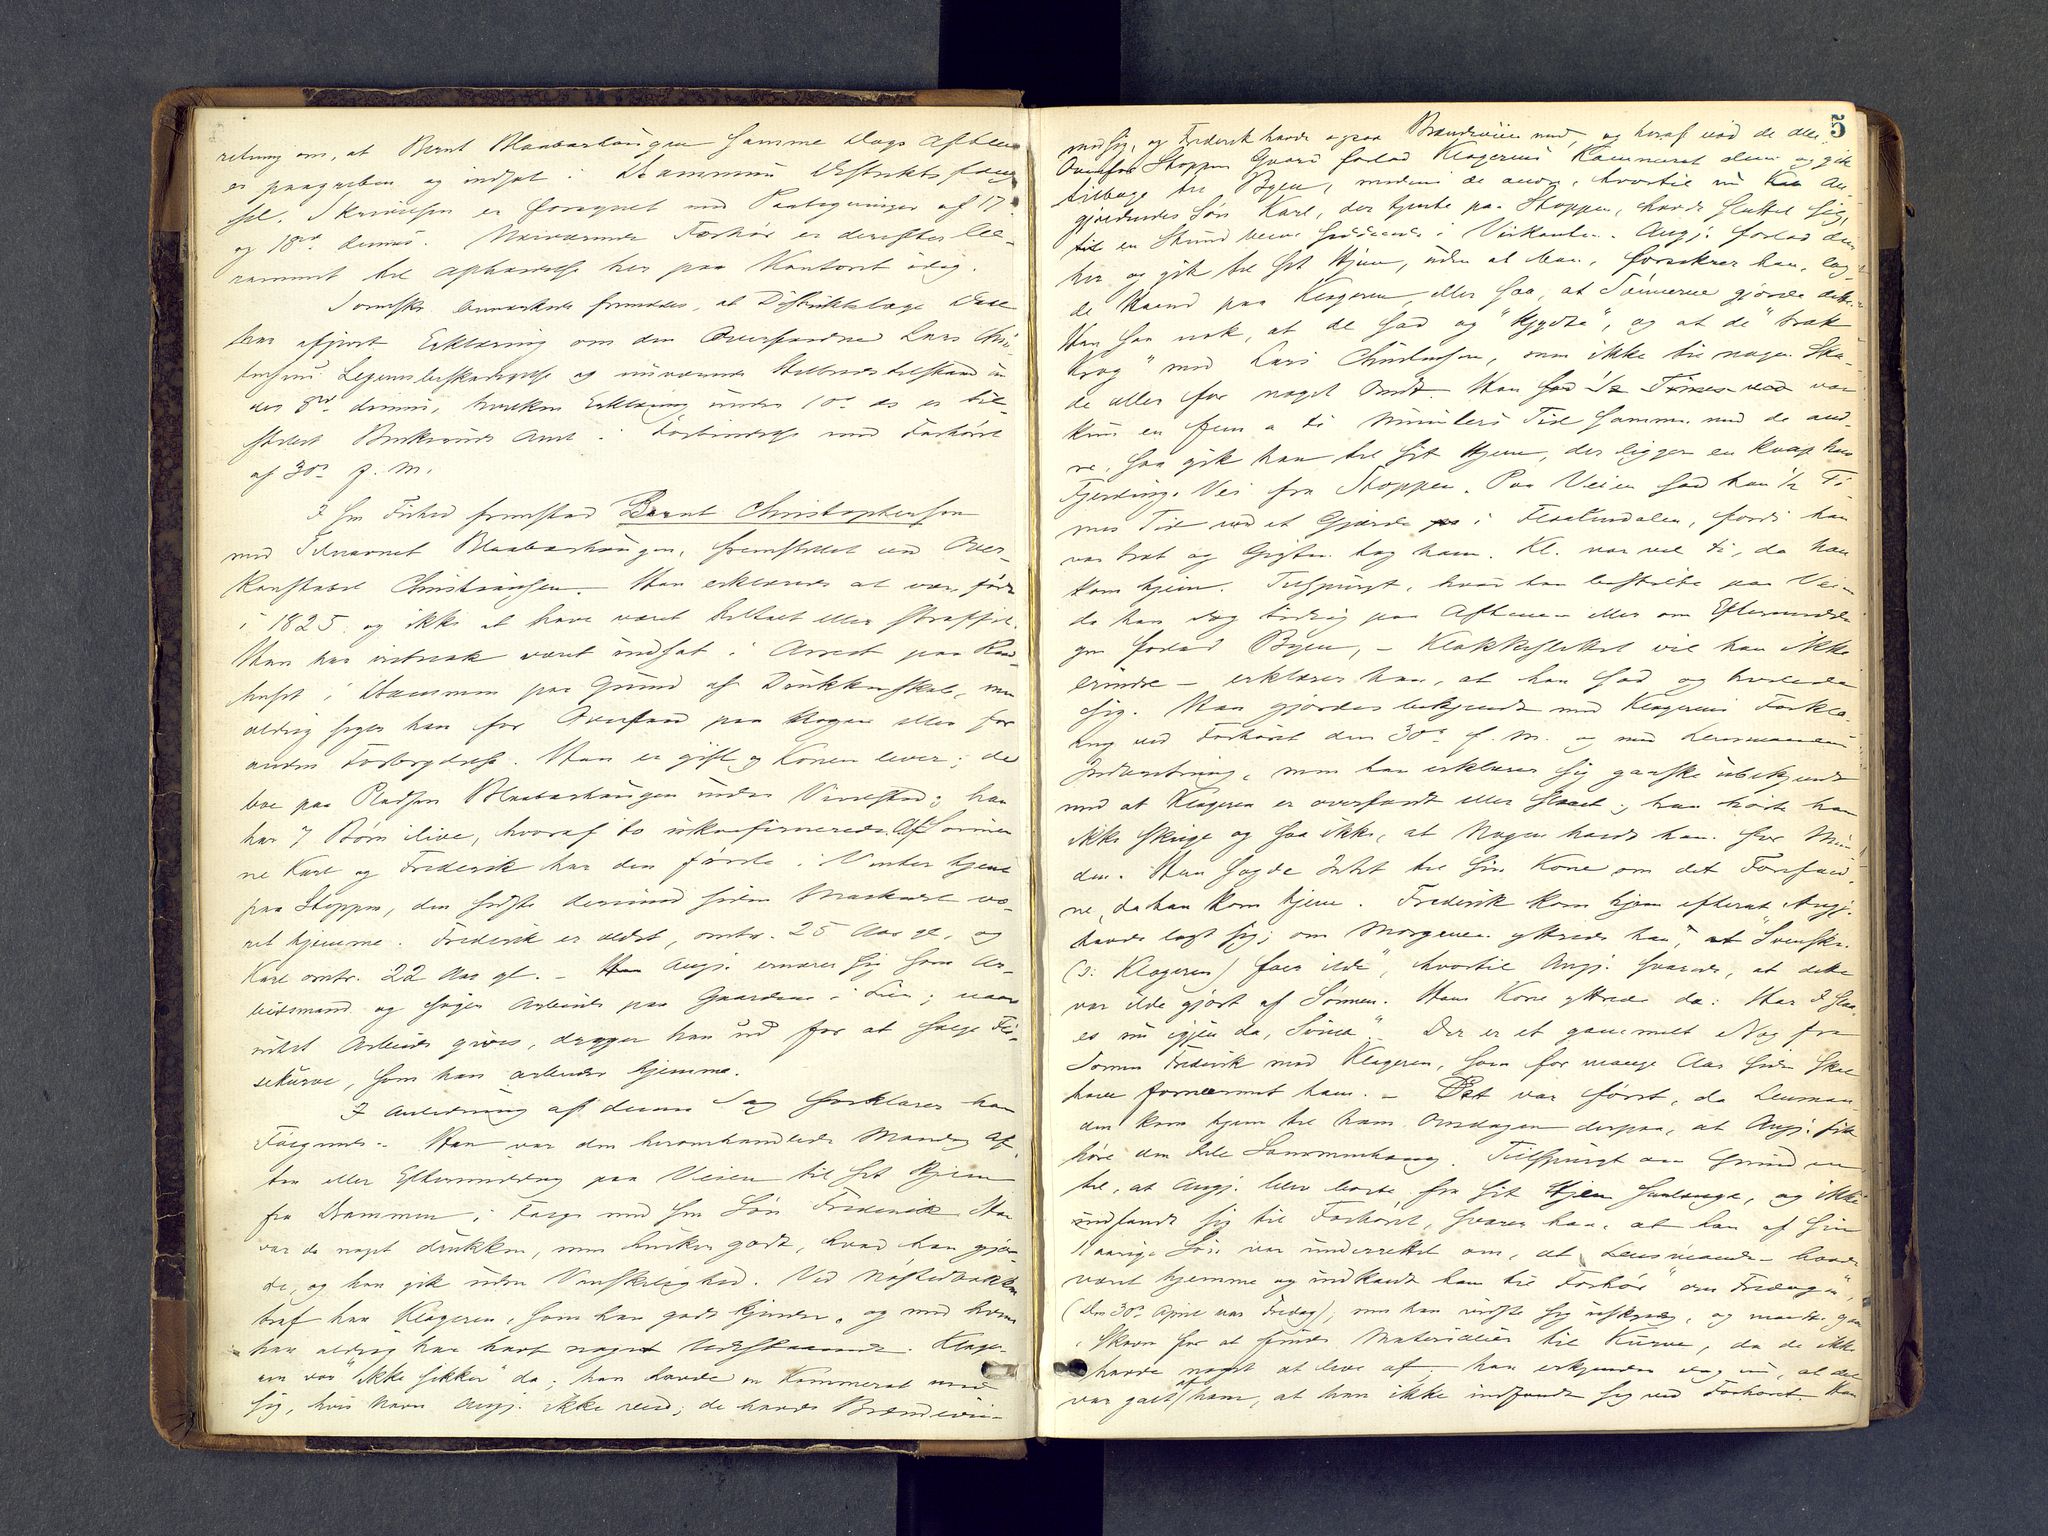 retning om, at Bernt Blaabærhaugen samme Dags Aften
er paagreben og indsat i Drammens Distriktsfæng-
sel. Skrivelsen er forsynet med Paategninger af 17de
og 18de dennes. Nærværende Forhør er derefter be-
rammet til Afholdelse her paa Kontoret idag.
bemærkedes fremdeles, at Distriktslæge
har afgivet Erklæring om den Overfaldne Lars Chri-
stensens Legemsbeskadigelse og nuværende Helbredstilstand un-
der 8de dennes, hvilken Erklæring under 10de ds er til-
stillet Buskeruds Amt i Forbindelse med Forhøret
af 30te f. M.
I sin Frihed fremstod Bernt Christophersen
med Tilnavnet Blaabærhaugen, fremstillet ved Over-
konstabel Christiansen. Han erklærede at være født
i 1825 og ikke at have været tiltalt eller straffet.
Han har vistnok været indsat i Arrest paa Raad-
huset i Drammen paa Grund af Drukkenskab, men
aldrig siger han for Overfald paa Nogen eller for
anden Forbrydelse. Han er gift og Konen lever; de
bor paa Pladsen Blaabærhaugen under; han
har 7 Børn ilive, hvoraf to ukonfirmerede. Af Sønner-
ne Karl og Frederik har den første i Vinter tjent
paa Stoppen, den sidste derimod siden Mikkeli væ-
ret hjemme. Frederik er ældst, omtr. 25 Aar gl., og
Karl omtr. 22 Aar gl. – Angj. ernærer sig som Ar-
beidsmand og søger Arbeide paa Gaardene i Lier; naar
intet Arbeide gives, drager han ud for at sælge Fli-
sekurve, som han arbeider hjemme.
I Anledning af denne Sag forklarer han
Følgende: Han var den heromhandlede Mandag Af-
ten eller Eftermiddag paa Veien til sit Hjem
fra Drammen i Følge med sin Søn Frederik. Han
var da noget drukken, men husker godt, hvad han gjor-
de, og han gik uden Vanskelighed. Ved Nøstedbakken
traf han Klageren, som han godt kjender, og med hvem
han aldrig har havt noget Udestaaende. Klage-
ren var "ikke sikker" da; han havde en Kammerat med
sig, hvis Navn Angj. ikke veed; de havde Brændevin
5
med sig, og Frederik havde ogsaa Brændeviin med, og heraf nød de alle.
Ovenfor Stoppen Gaard forlod Klagerens Kammerat dem og gik
tilbage til Byen, medens de andre, hvortil nu An-
gjældendes Søn Karl, der tjente paa Stoppen, havde sluttet sig,
en Stund være siddende i Veikanten. Angj. forlod dem
her og gik til sit Hjem, uden at han, forsikrer han, lag-
de Haand paa Klageren, eller saa, at Sønnerne gjorde dette.
Han saa nok, at de sad og "kjydta", og at de "trak
Krog" med Lars Christensen, men ikke til nogen Ska-
de eller for noget Ondt. Han sad 1/2 Times var
kun en fem a ti Minuters Tid sammen med de and-
re, saa gik han til sit Hjem, der ligger en knap halv
Fjerdings Vei fra Stoppen. Paa Veien sad han 1/2 Ti-
mes Tid ved et Gjærde i, fordi han
var træt og Gigten tog ham. Kl. var vel ti, da han
kom hjem. Tilspurgt, hvad han bestilte paa Veien
da han dog tidlig paa Aftenen eller om Eftermidda-
gen forlod Byen, – Klokkeslettet vil han ikke
erindre – erklærer han, at han sad og hvilede
sig. Han gjordes bekjendt med Klagerens Forkla-
ring ved Forhøret den 30te f. M. og med Lensmandens
Indberetning, men han erklærer sig ganske ubekjendt
med at Klageren er overfaldt eller slaaet; han hørte ham
ikke skrige og saa ikke, at Nogen holdt ham for Mun-
den. Han sagde Intet til sin Kone om det Forefald-
ne, da han kom hjem. Frederik kom hjem efterat Angj.
havde lagt sig; om Morgenen yttrede han, at "Svensken
(ɔ: Klageren) foer ilde", hvortil Angj. svarede, at dette
var ilde gjort af Sønnen. Hans Kone yttrede da: Har I slaa-
es nu igjen da, ". Der er et gammelt Nag fra
Sønnen Frederik mod Klageren, som for mange Aar siden skal
have fornærmet ham. – Det var først, da Lensman-
den kom hjem til ham Onsdagen derpaa, at Angj. fik
høre den hele Sammenhæng. Tilspurgt om Grunden
til, at Angj. blev borte fra sit Hjem saalænge, og ikke
indfandt sig til Forhøret, svarer han, at han af sin
11 aarige Søn var underrettet om, at Lensmanden havde
været hjemme og indkaldt ham til Forhør "om Fredagen",
(den 30te April var Fredag), men han vidste sig uskyldig, og maatte gaa
i Skoven for at finde Materialier til Kurve, da de ikke
havde noget at leve af; han erkjender dog nu, at det
var galt af ham, at han ikke indfandt sig ved Forhøret. Han